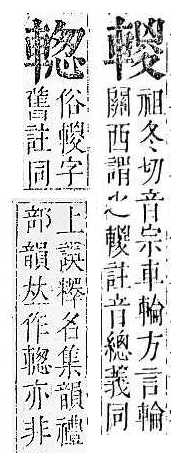 䡯
祖冬切音宗車輪方言輪
關西謂之䡯註音總義同
輚
俗䡯字
舊註同
上誤釋名集韻禮
部韻𠀤作輚亦非